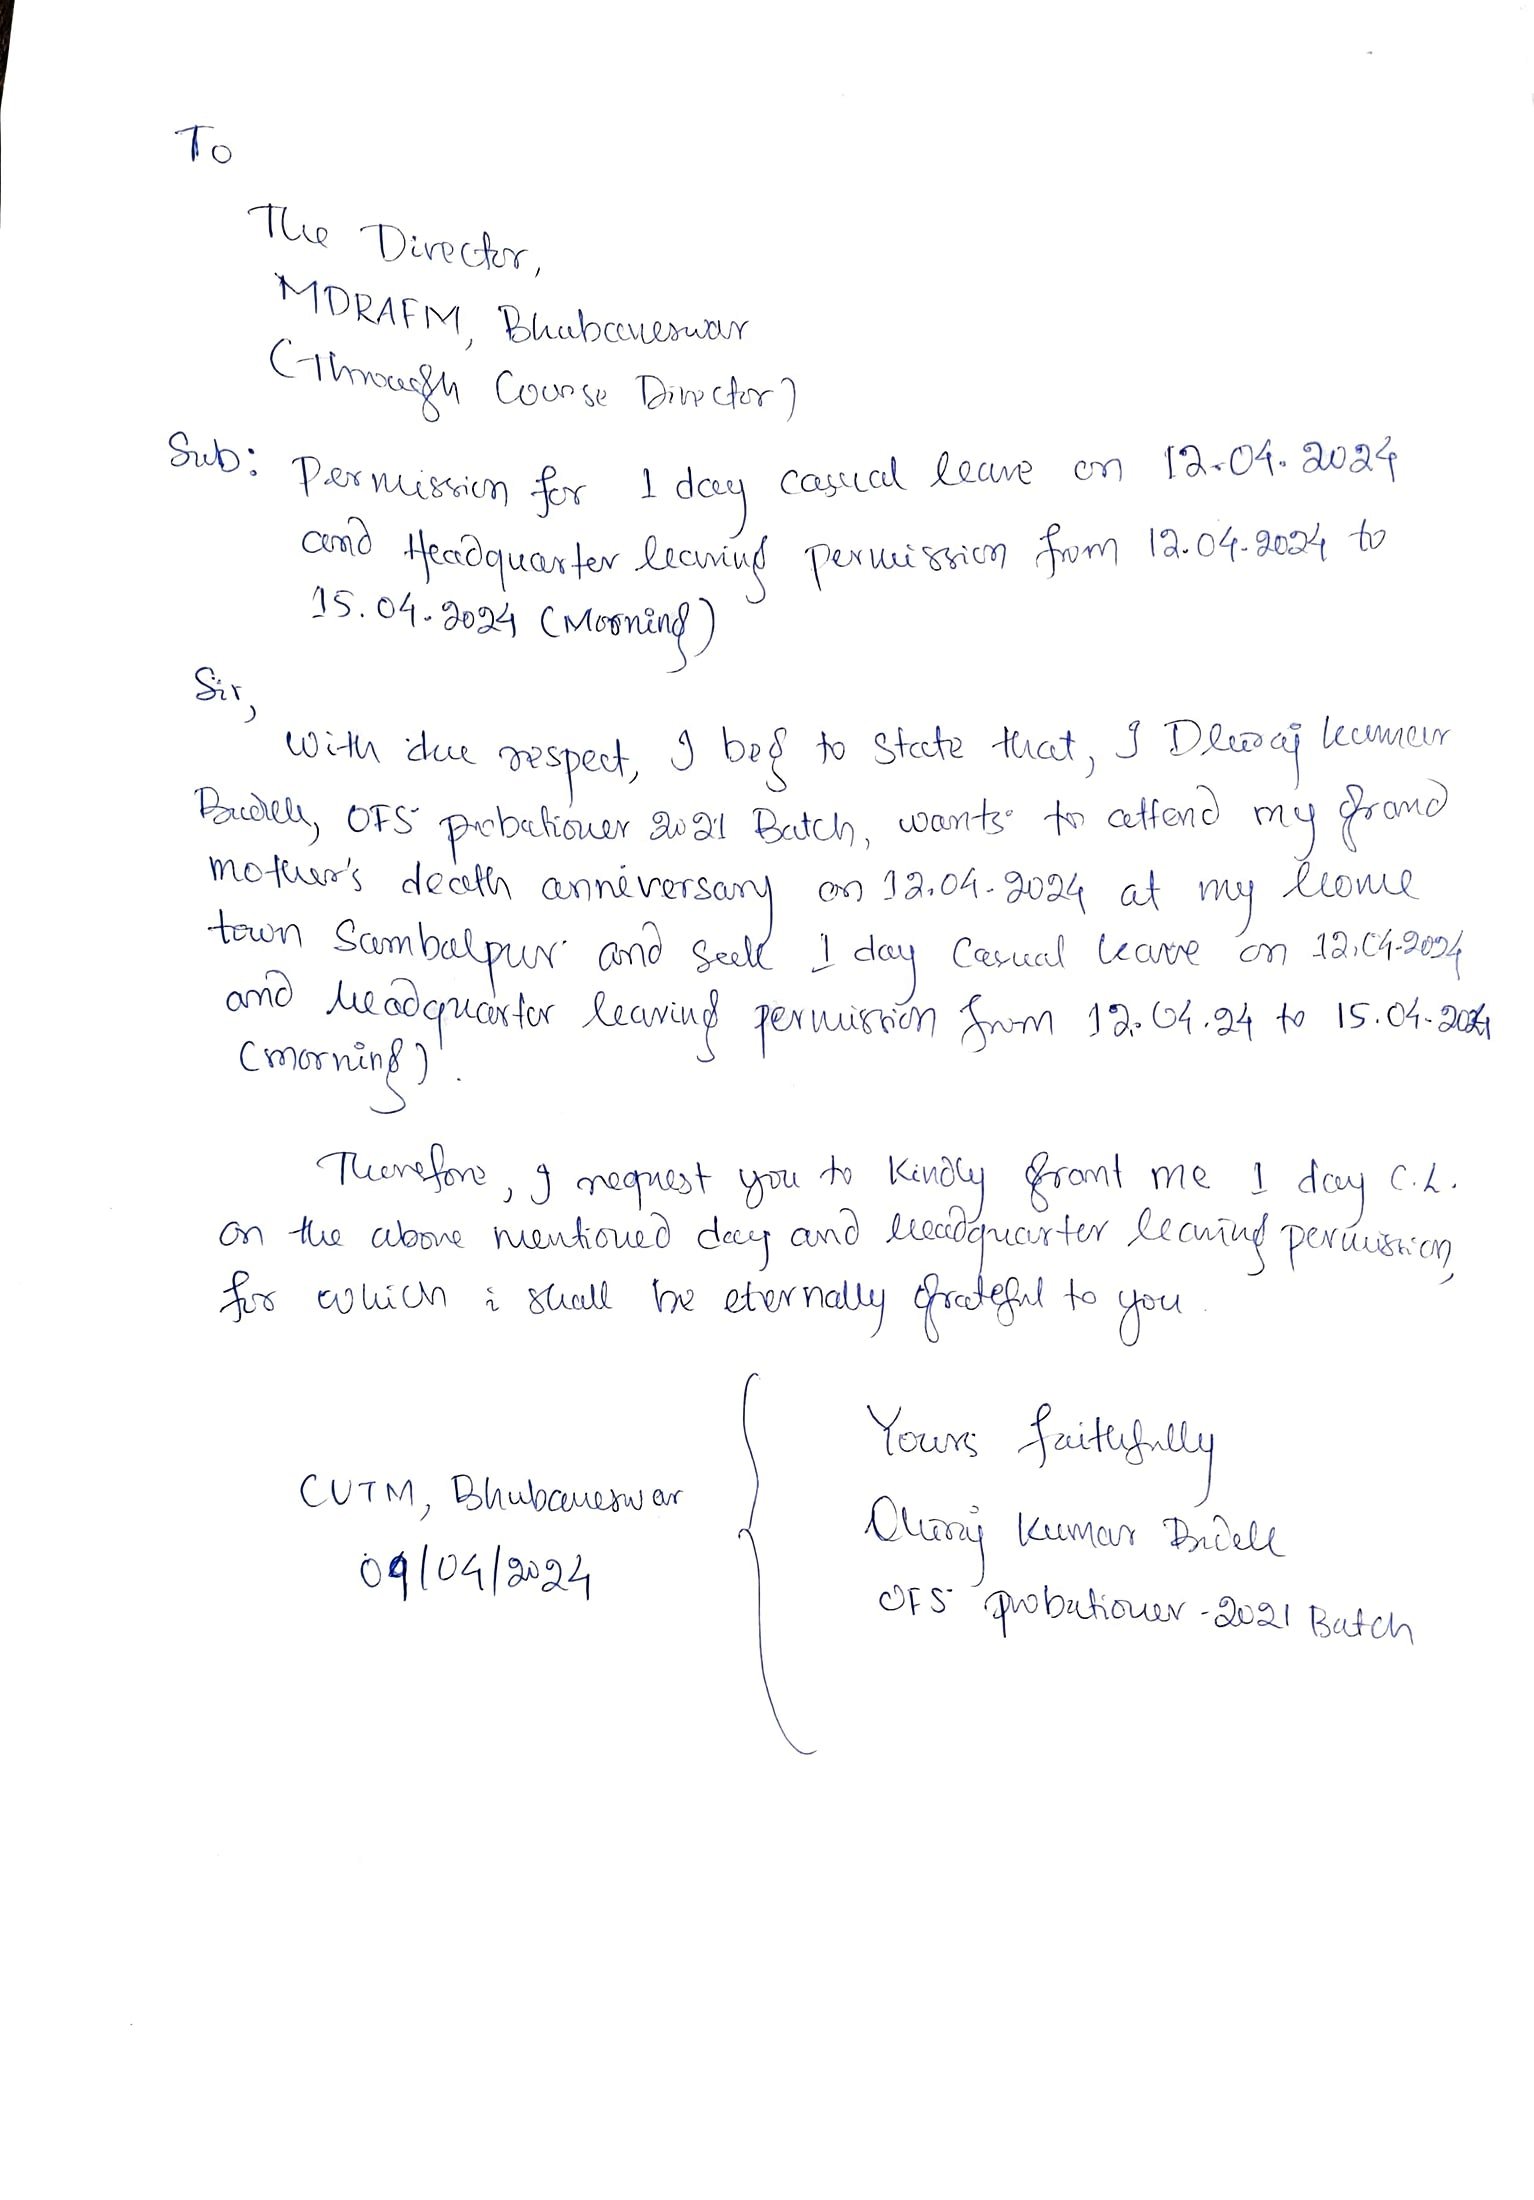 To
The Director,
MDRAFM, Bhubaneswar
(Through Course Director)
Sub: Permission for 1 day casual leave on 12.04.2024
and Headquarter leaving permission from 12.04.2024 to
15.04.2024 (Morning)
Sir,
With due respect, I beg to state that, I Dhiraj Kumar
OFS probationer 2021 Batch, wants to attend my grand
mother's death anniversary on 12.04.2024 at my home
town Sambalpur and seek 1 day Casual leave on 12.04.2024
and headquarter leaving permission from 12.04.24 to 15.04.2024
(morning).
Therefore, I request you to kindly grant me 1 day C.L.
on the above mentioned day and headquarter leaving permission,
for which i shall be eternally grateful to you.
Yours faithfully
CUTM, Bhubaneswar
09/04/2024
Dhiraj Kumar
OFS probationer - 2021 Batch